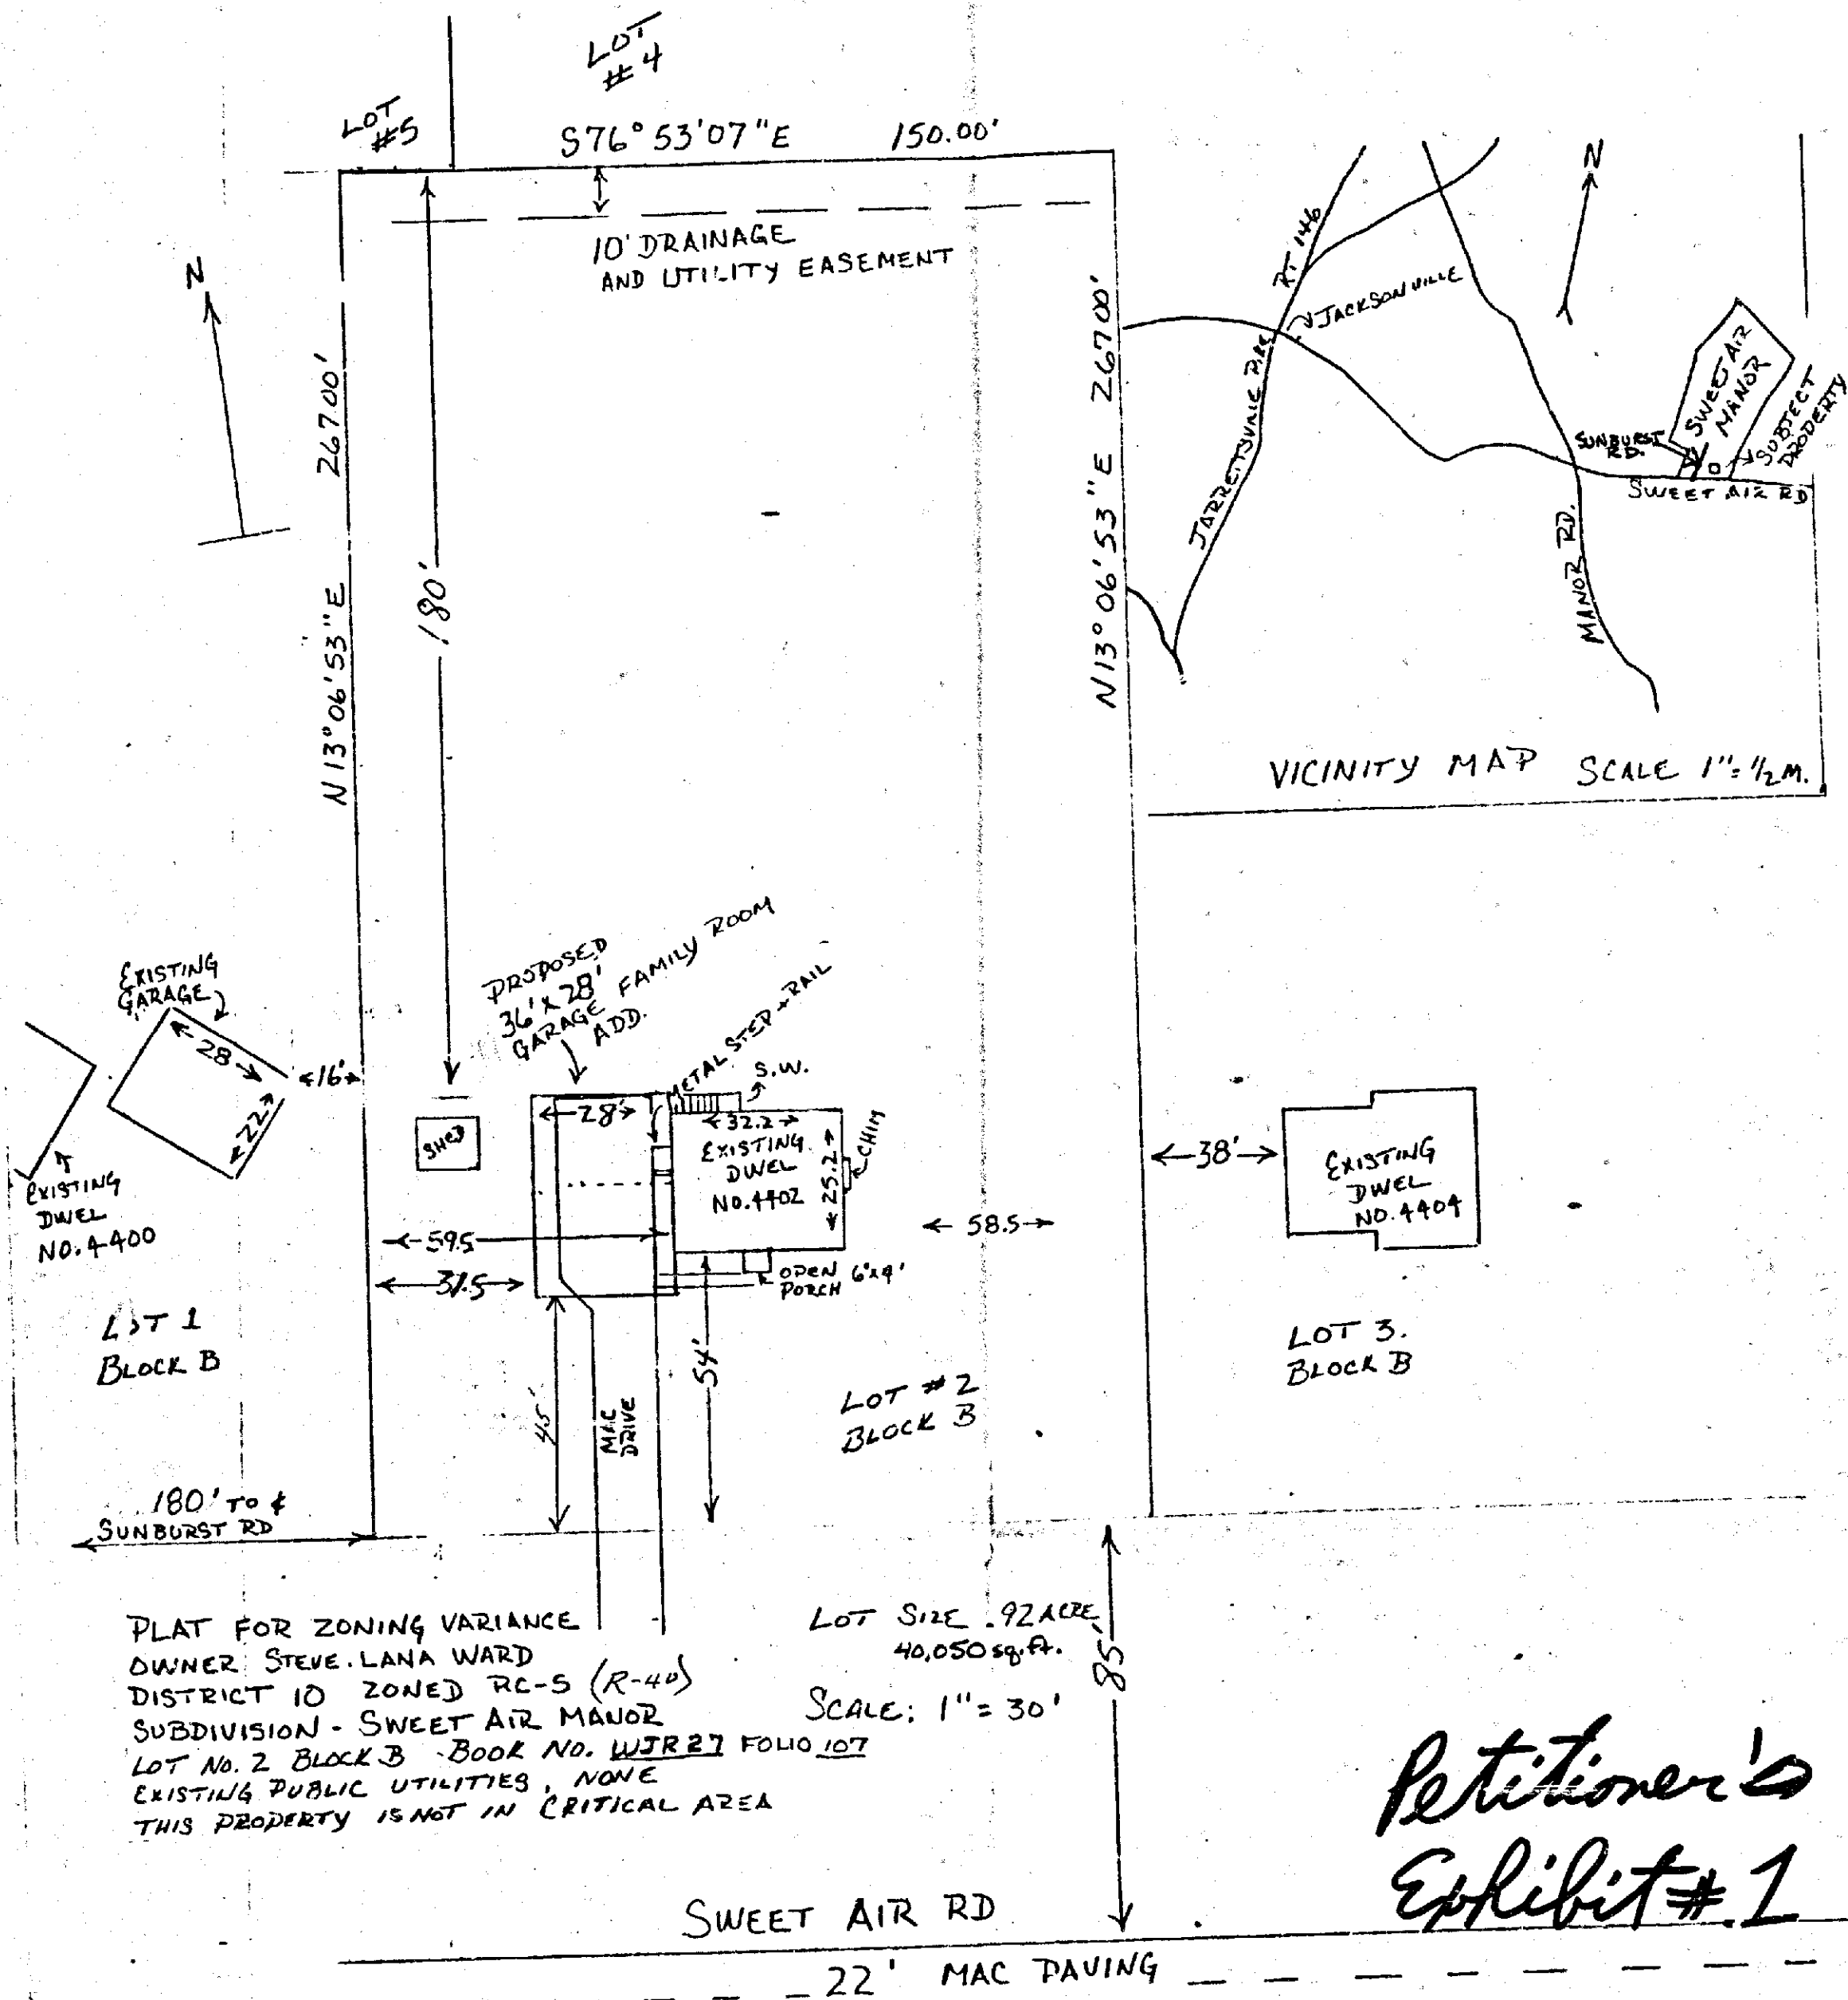 LOT
#4
LOT
#5
S76° 53'07"E 150.00'
10' DRAINAGE
AND UTILITY EASEMENT
N
N13°06'53"E 267.00'
180'
N13°06'53"E 267.00'
N
RT 146
JACKSONVILLE
JARRETSVILLE PIKE
SWEET AIR
MANOR
SUBJECT
PROPERTY
SUNBURST
RD.
SWEET AIR RD
MANOR RD.
VICINITY MAP SCALE 1"=1/2M.
EXISTING
GARAGE
28
22
16'
EXISTING
DWEL
NO.4400
PROPOSED
36'x28'
GARAGE FAMILY ROOM
ADD.
METAL STEP + RAIL
S.W.
SHED
28'
32.2
EXISTING
DWEL
NO.4402
25.2
CHIM
59.5
31.5
58.5
OPEN 6'x9'
PORCH
38'
EXISTING
DWEL
NO.4404
LOT 1
BLOCK B
45'
MAC
DRIVE
54'
LOT #2
BLOCK B
LOT 3.
BLOCK B
180' TO ₵
SUNBURST RD
85'
PLAT FOR ZONING VARIANCE
OWNER: STEVE.LANA WARD
DISTRICT 10 ZONED RC-5 (R-40)
SUBDIVISION - SWEET AIR MANOR
LOT NO. 2 BLOCK B - BOOK NO. WJR27 FOLIO 107
EXISTING PUBLIC UTILITIES, NONE
THIS PROPERTY IS NOT IN CRITICAL AREA
LOT SIZE .92 ACRE
40,050 sq.ft.
SCALE: 1"=30'
Petitioner's
Exhibit #1
SWEET AIR RD
22' MAC PAVING